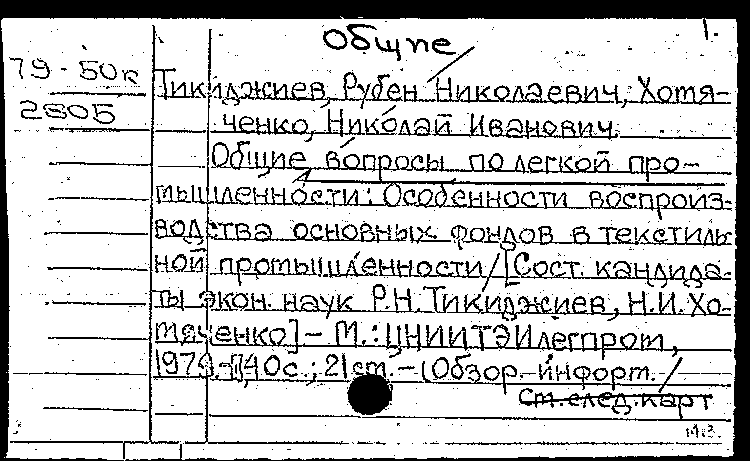 1.
Общие
79-50к
2805
Тикиджиев, Рубен Николаевич, Хотя-
ченко, Николай Иванович.
Общие вопросы по легкой про-
мышленности: Особенности воспроиз-
водства основных фондов в текстиль
ной промышленности / [Сост. кандида-
ты экон. наук Р.Н. Тикиджиев, Н.И. Хо-
тяченко] - М.: ЦНИИТЭИлегпром,
1979.- 40 с.; 21 см. - (Обзор. информ. /
См. след. карт